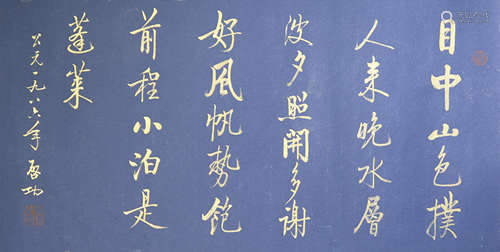 目中山色撲
人来晚水層
波夕照開多謝
好风帆勢飽
前程小泊是
蓬萊
公元一九八六年 启功